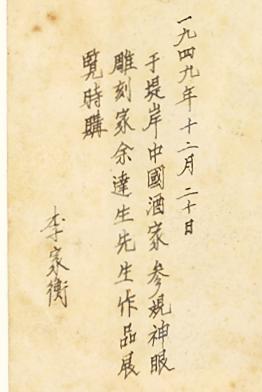 一九四九年十二月二十日
于堤岸中國酒家參观神眼
雕刻家余達生先生作品展
覽時購
李家衡